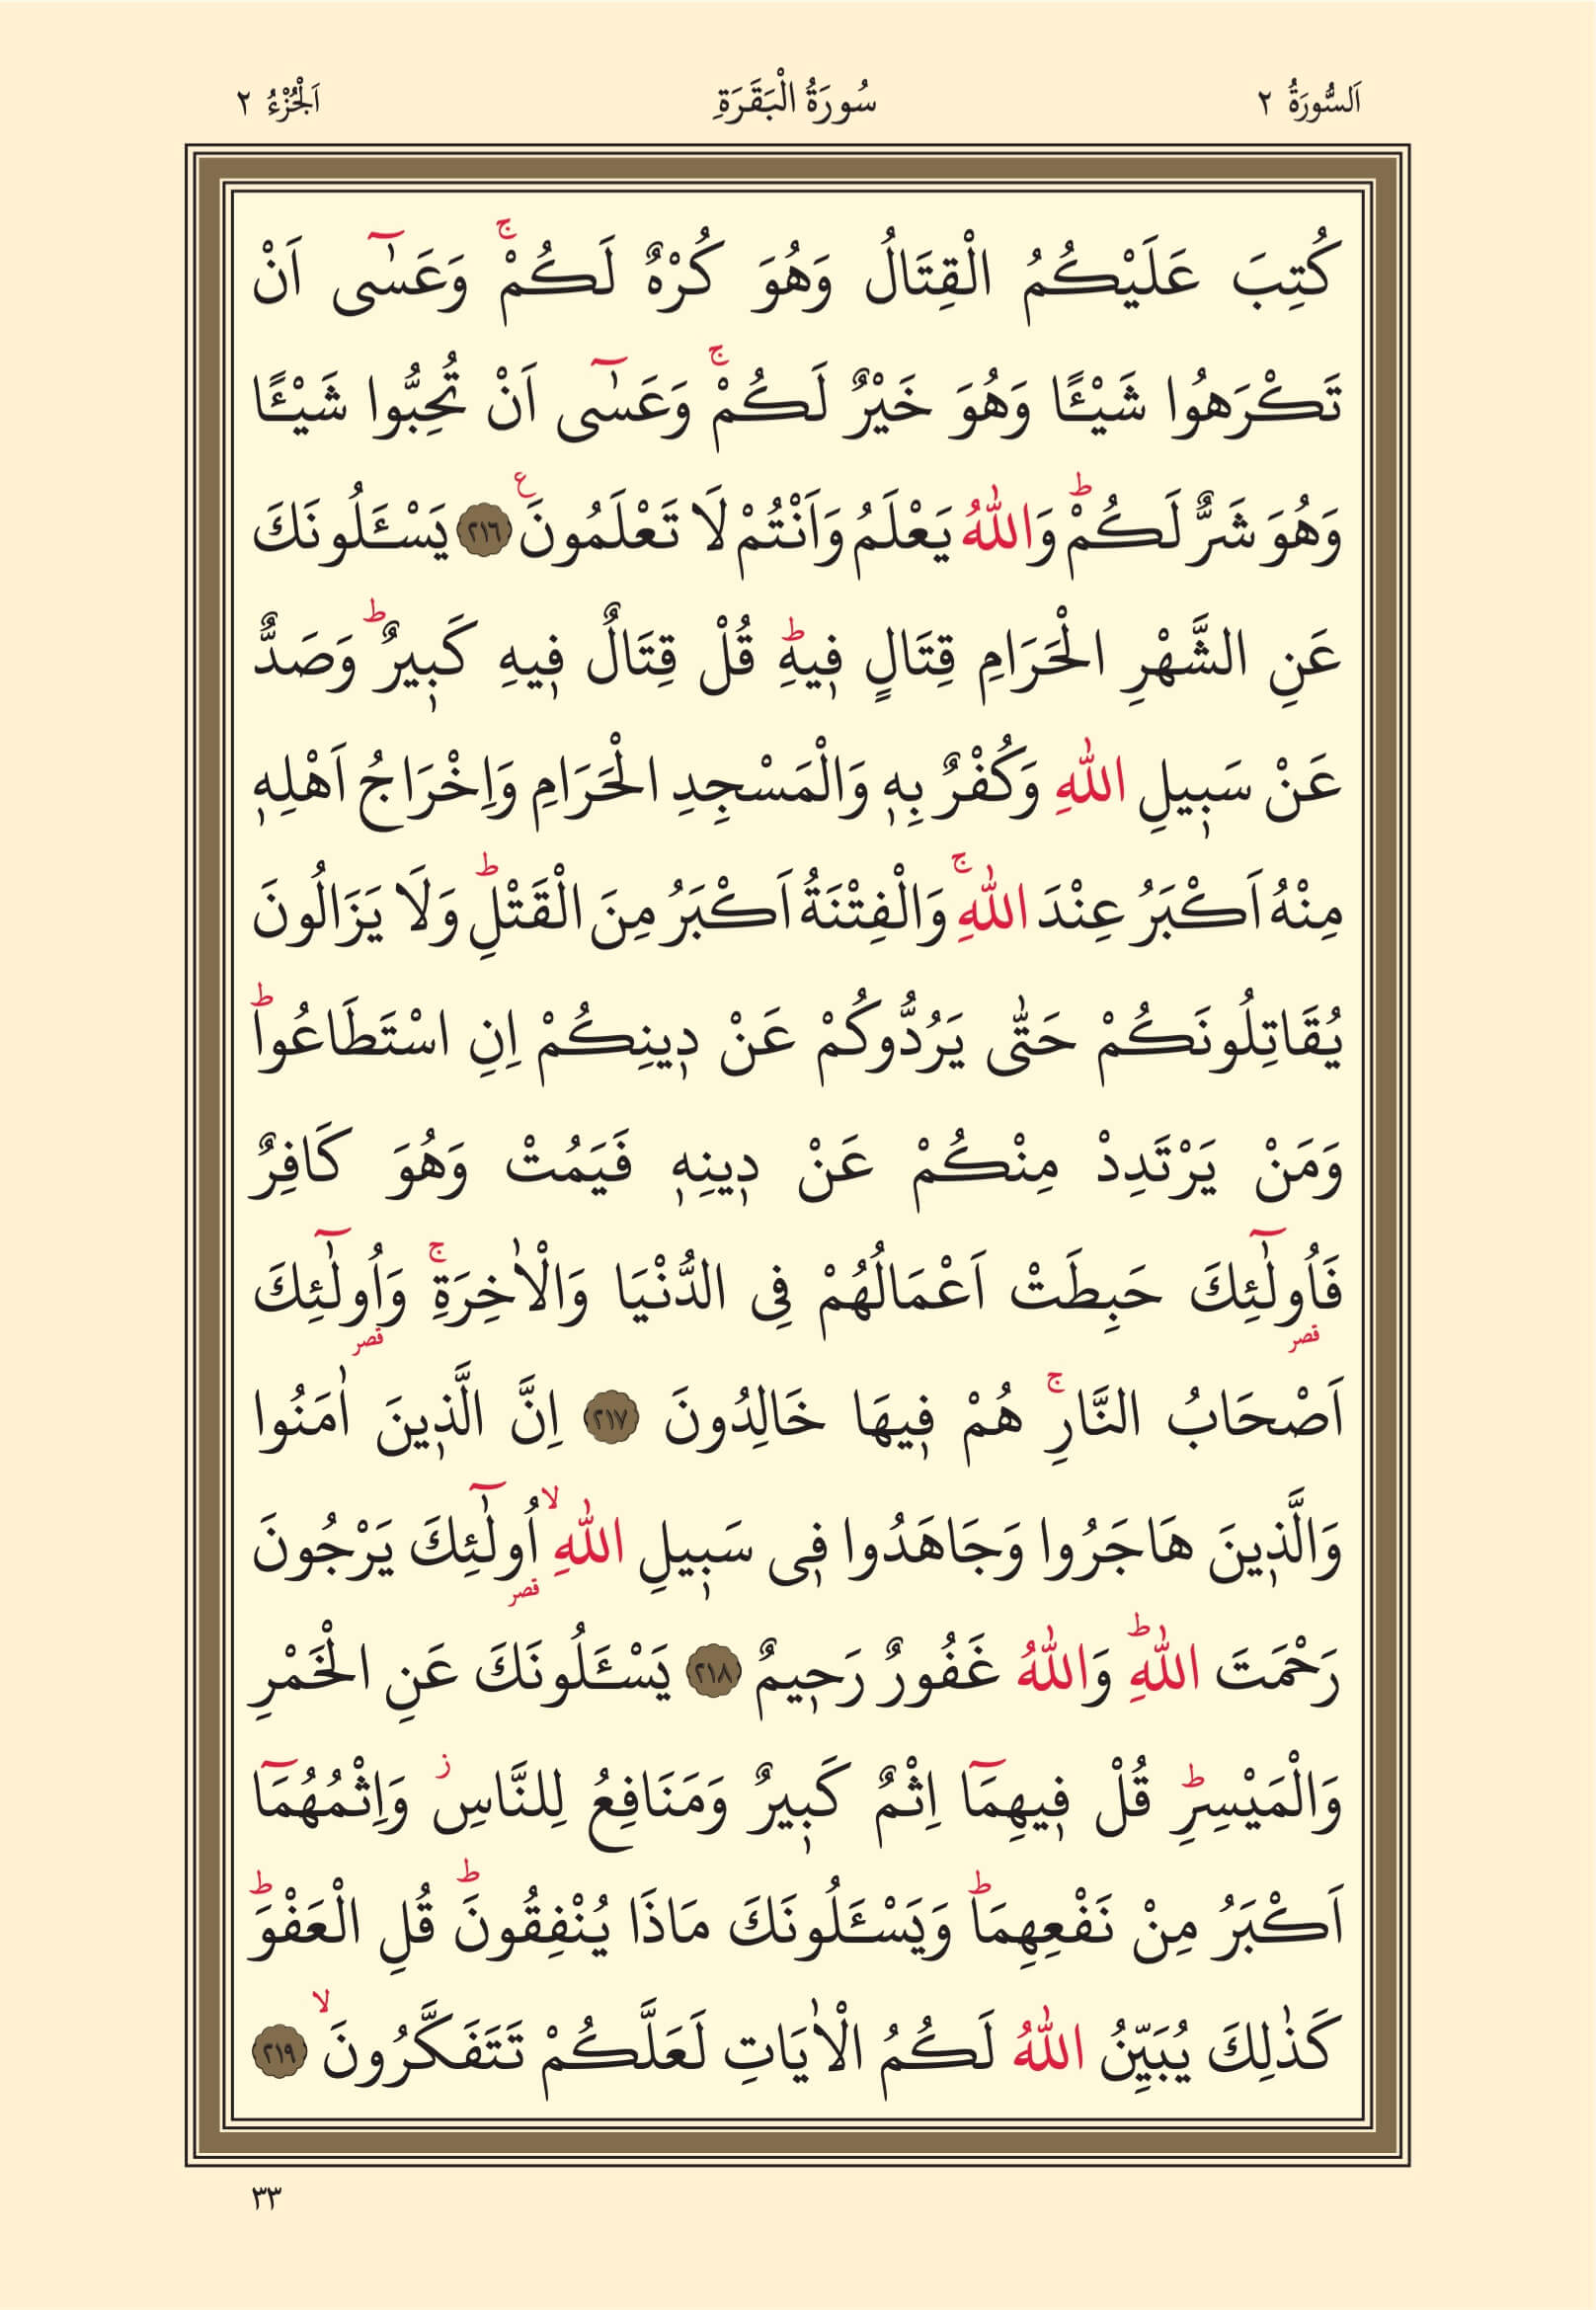 اَلسُّورَةُ ٢ سُورَةُ الْبَقَرَةِ اَلْجُزْءُ ٢
كُتِبَ عَلَيْكُمُ الْقِتَالُ وَهُوَ كُرْهٌ لَكُمْۚ وَعَسٰٓى اَنْ
تَكْرَهُوا شَيْـًٔا وَهُوَ خَيْرٌ لَكُمْۚ وَعَسٰٓى اَنْ تُحِبُّوا شَيْـًٔا
وَهُوَ شَرٌّ لَكُمْؕ وَاللّٰهُ يَعْلَمُ وَاَنْتُمْ لَا تَعْلَمُونَ۟ ﴿٢١٦﴾ يَسْـَٔلُونَكَ
عَنِ الشَّهْرِ الْحَرَامِ قِتَالٍ ف۪يهِؕ قُلْ قِتَالٌ ف۪يهِ كَب۪يرٌؕ وَصَدٌّ
عَنْ سَب۪يلِ اللّٰهِ وَكُفْرٌ بِه۪ وَالْمَسْجِدِ الْحَرَامِ وَاِخْرَاجُ اَهْلِه۪
مِنْهُ اَكْبَرُ عِنْدَ اللّٰهِۚ وَالْفِتْنَةُ اَكْبَرُ مِنَ الْقَتْلِؕ وَلَا يَزَالُونَ
يُقَاتِلُونَكُمْ حَتّٰى يَرُدُّوكُمْ عَنْ د۪ينِكُمْ اِنِ اسْتَطَاعُواؕ
وَمَنْ يَرْتَدِدْ مِنْكُمْ عَنْ د۪ينِه۪ فَيَمُتْ وَهُوَ كَافِرٌ
فَاُو۬لٰٓئِكَ حَبِطَتْ اَعْمَالُهُمْ فِى الدُّنْيَا وَالْاٰخِرَةِۚ وَاُو۬لٰٓئِكَ
قصر قصر
اَصْحَابُ النَّارِۚ هُمْ ف۪يهَا خَالِدُونَ ﴿٢١٧﴾ اِنَّ الَّذ۪ينَ اٰمَنُوا
وَالَّذ۪ينَ هَاجَرُوا وَجَاهَدُوا ف۪ى سَب۪يلِ اللّٰهِۙ اُو۬لٰٓئِكَ يَرْجُونَ
قصر
رَحْمَتَ اللّٰهِؕ وَاللّٰهُ غَفُورٌ رَح۪يمٌ ﴿٢١٨﴾ يَسْـَٔلُونَكَ عَنِ الْخَمْرِ
وَالْمَيْسِرِؕ قُلْ ف۪يهِمَٓا اِثْمٌ كَب۪يرٌ وَمَنَافِعُ لِلنَّاسِؗ وَاِثْمُهُمَٓا
اَكْبَرُ مِنْ نَفْعِهِمَاؕ وَيَسْـَٔلُونَكَ مَاذَا يُنْفِقُونَؕ قُلِ الْعَفْوَؕ
كَذٰلِكَ يُبَيِّنُ اللّٰهُ لَكُمُ الْاٰيَاتِ لَعَلَّكُمْ تَتَفَكَّرُونَۙ ﴿٢١٩﴾
٣٣